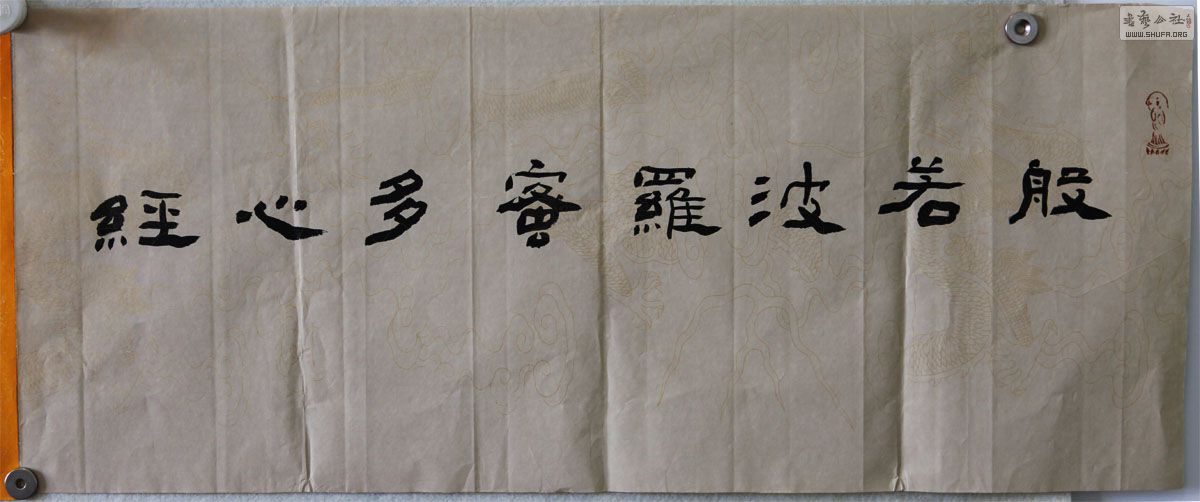 般若波羅蜜多心經
書藝公社
WWW.SHUFA.ORG